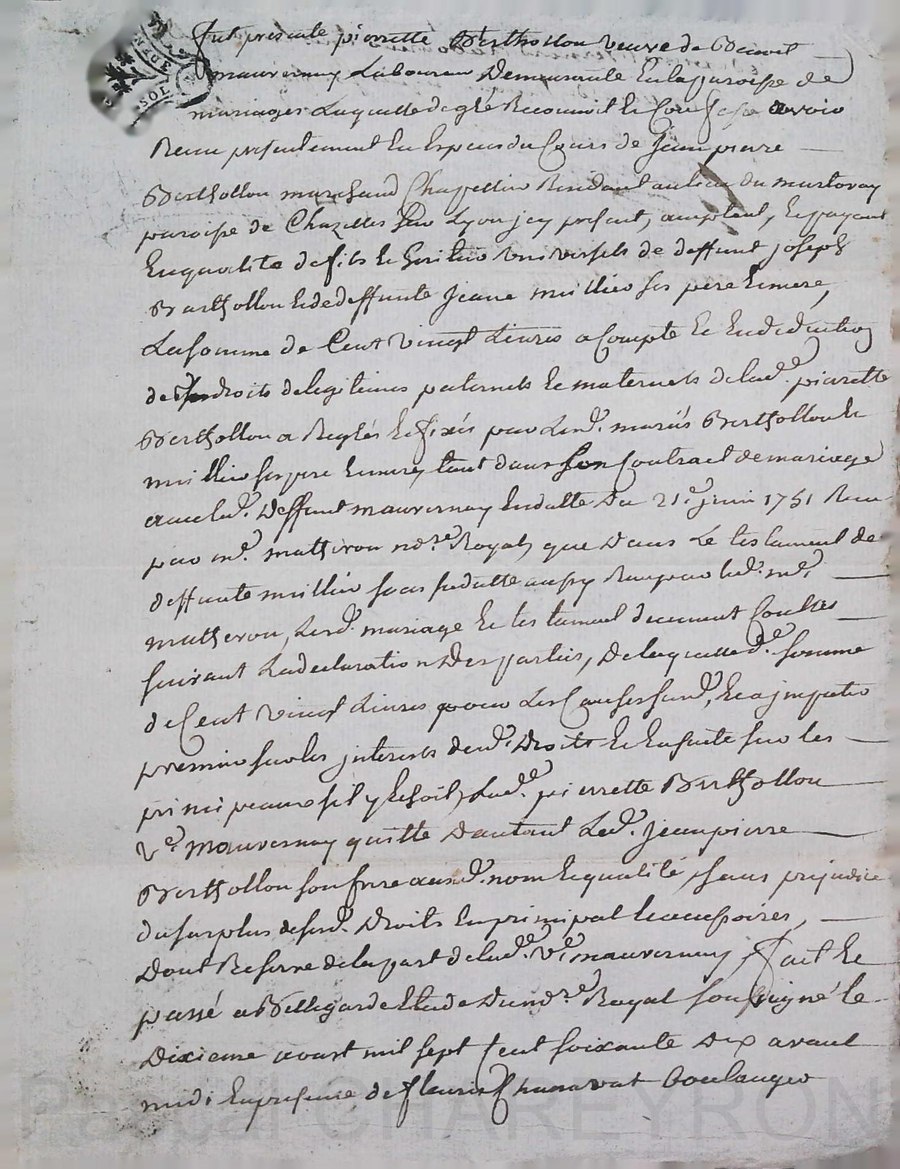 fut presente pierrette Berthollon veuve de Benoit
mauvernay Laboureur Demeurante En la paroisse de
mariages Laquelle de gré Reconnoit Et Confesse avoir
Receu presentement En Especes du Cours de Jeanpierre
Berthollon marchand Chapellier Residant au lieu du martoray
paroisse de Chazelles Sur Lyon jcy present, acceptant, Et payant
En qualité de fils Et heritier universels de deffunt joseph
Berthollon Et de deffunte jeane millier ses pere Et mere,
La somme de Cent vingt Livres a Compte Et En deduction
de ses droits de legitimes paternels Et maternels de lad.e pierrette
Berthollon a Reglés Et fixés par Lesd. mariés Berthollon Et
millier ses pere Et mere, tant dans son Contract de mariage
avec led. Deffunt mauvernay En datte Du 21.e juin 1751 Receu
par m.e matheron no.re Royal, que Dans Le testament de
deffunte millier sous sa datte aussy Receu par led. m.e
matheron, Lesd. mariage Et testament deuement Controllés
suivant La declaration Des parties, De laquelle d.e somme
de Cent vingt Livres pour Les Causes susd., Et a jmputer
premier sur les jnterests desd. Droits Et Ensuite sur les
principeaux sil y Echoit, Lad.e pierrette Berthollon
v.e Mauvernay quitte Dautant Led. Jeanpierre
Berthollon son frere ausd. nom Et qualité, sans prejudice
du surplus de sesd. Droits En principal Et accessoires,
Dont Reserve de la part de lad.e v.e mauvernay, fait Et
passé a Bellegarde Etude Du no.re Royal soussigné le
Dixieme avost mil sept Cent soixante Dix avant
midi En presence de fleurie Chanavat boulanger
SOL
Pascal CHAREYRON